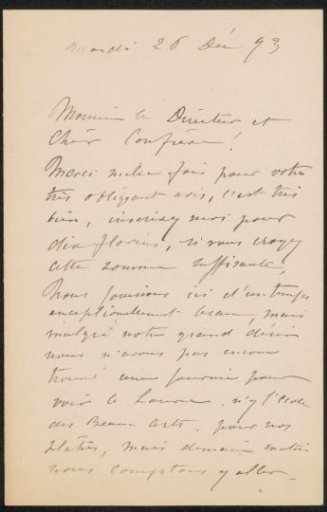 mardi 26 Déc 93
Monsieur le Directeur et
Cher Confrère !
Merci mille fois pour votre
très obligeant avis, c'est très
bien, inscrivez moi pour
dix florins, si vous croyez
cette somme suffisante,
Nous jouissons ici d'un temps
exceptionnellement beau, mais
malgré notre grand désir
nous n'avons pas encore
trouvé une journée pour
voir le Louvre n'y l'école
des Beaux Arts. pour nos
plâtres, mais demain matin
nous comptons y aller.